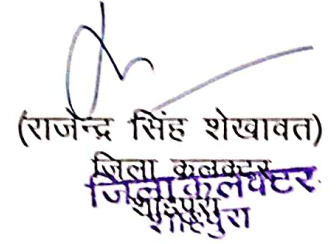 (राजेन्द्र सिंह शेखावत)
जिला कलक्टर
जिला कलेक्टर
शाहपुरा
शाहपुरा